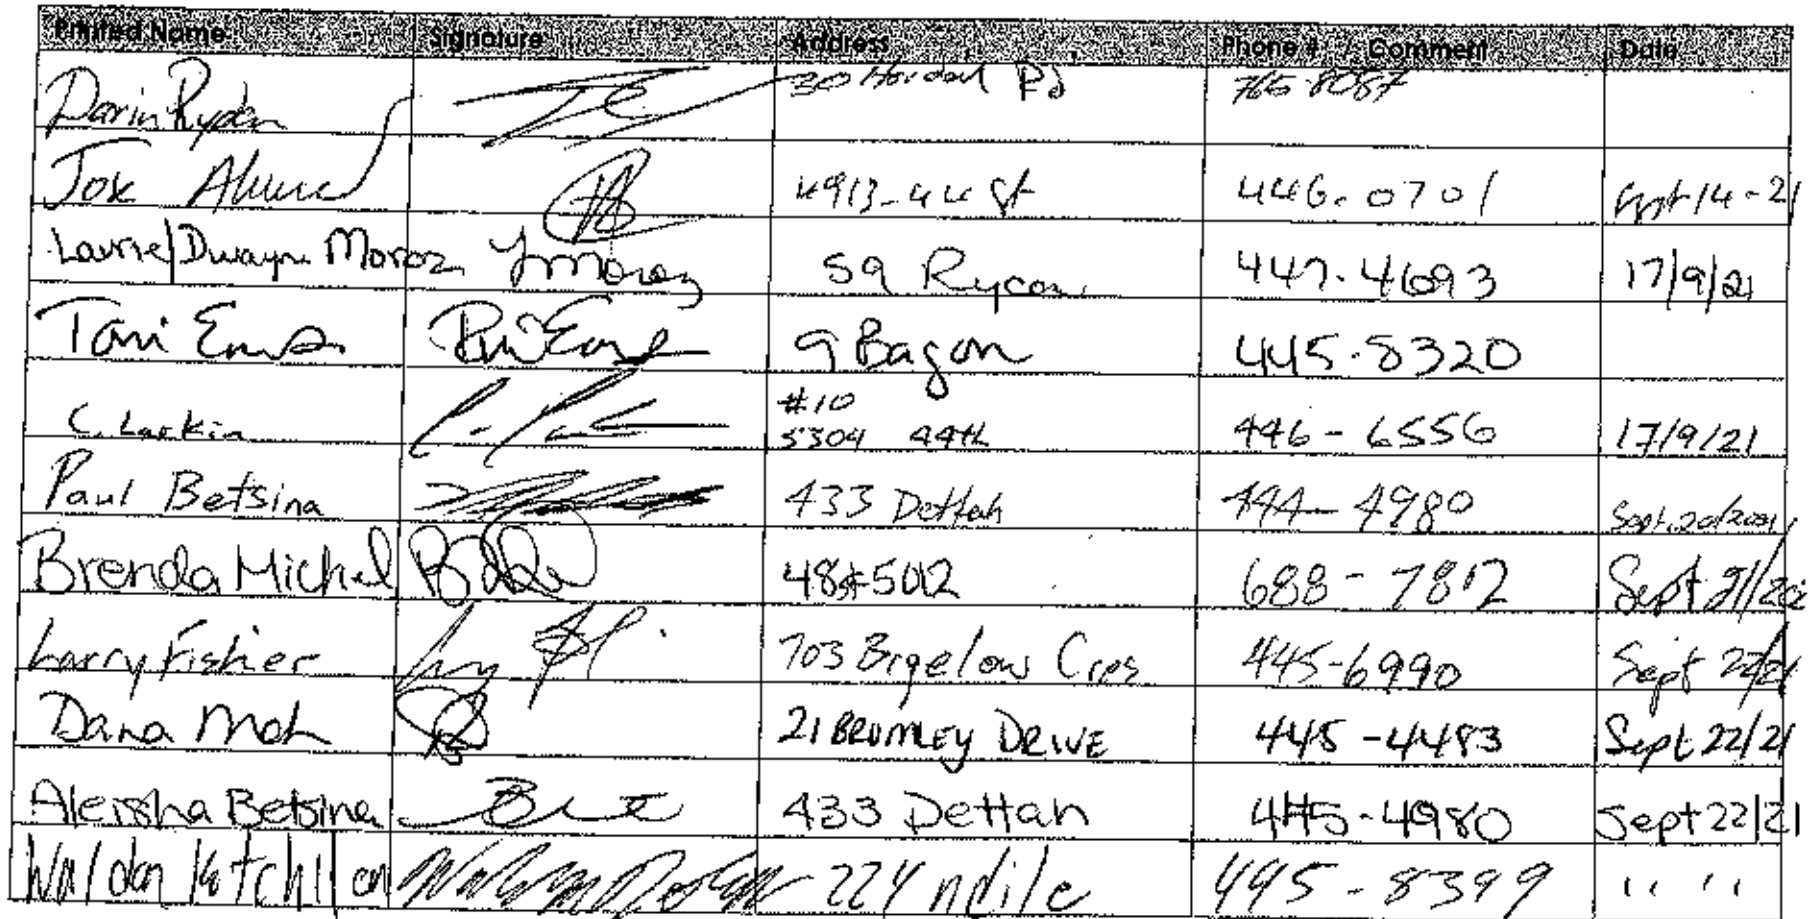 Printed Name Signature Address Phone # / Comment Date
Darin Rydn 30 Rd 765-8087
Jose 4913-44 St 446-0701 Sept 14-21
Laurie/Dwayne Moroz LMoroz 59 Rycon 447-4693 17/9/21
Toni 9 Bagon 445-8320
C. Larkin #10 446-6556 17/9/21
5304 44th
Paul Betsina 433 Dettah 444-4980 Sept. 20/2021
Brenda Michel 48st 5012 688-7812 Sept 21/202
Larry Fisher 703 Bigelow Cres 445-6990 Sept 22/21
Dana Moh 21 BROMLEY DRIVE 445-4483 Sept 22/21
Aleisha Betsina 433 Dettah 445-4980 Sept 22/21
Waldon 224 ndilo 445-8399 '' ''